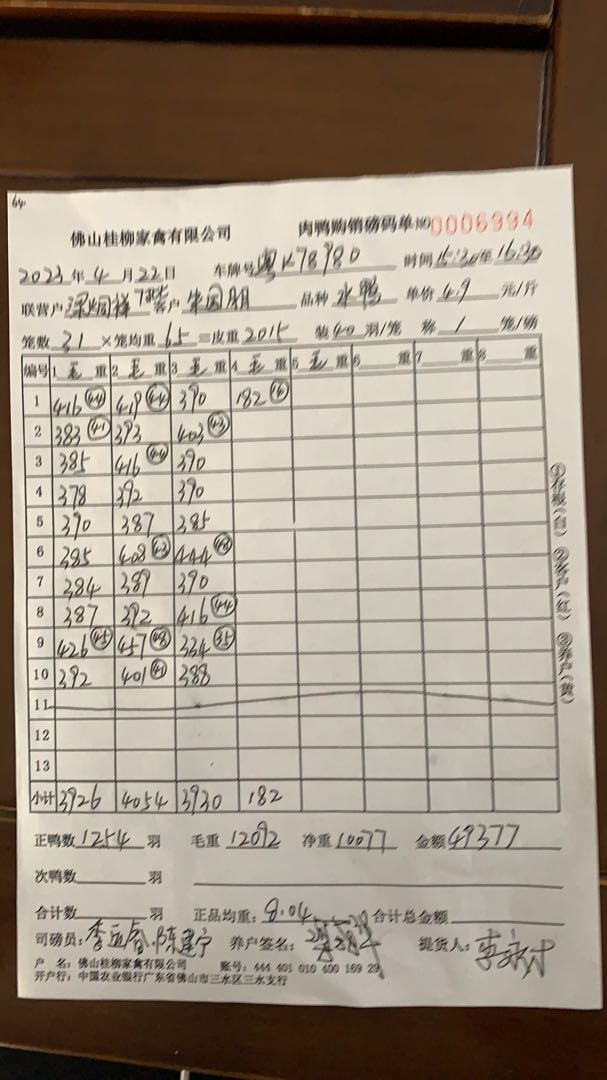 64
佛山桂柳家禽有限公司 肉鸭购销磅码单 №0006994
2023年4月22日 车牌号 粤K78980 时间 15:30至16:30
联营户 客户 朱国明 品种 水鸭 单价 4.9 元/斤
笼数 31 ×笼均重 65 =皮重 2015 装 40 羽/笼 称 1 笼/磅
编号 1 毛 重 2 毛 重 3 毛 重 4 毛 重 5 毛 重 6 重 7 重 8 重
1 416 (44) 419 (44) 390 182
2 383 (41) 393 403 (43)
3 385 416 (44) 390
4 378 392 390
5 390 387 385
6 385 408 (43) 444
7 384 389 390
8 387 392 416 (44)
9 426 (45) 457 (48) 334 (35)
10 392 401 388
11
12
13
小计 3926 4054 3930 182
正鸭数 1254 羽 毛重 12092 净重 10077 金额 49377
次鸭数 羽
合计数 羽 正品均重: 8.04 合计总金额
司磅员: 养户签名: 提货人:
户 名: 佛山桂柳家禽有限公司 账号: 444 401 010 400 169 29
开户行: 中国农业银行广东省佛山市三水区三水支行
①存根(白) ②客户(红) ③养户(黄)